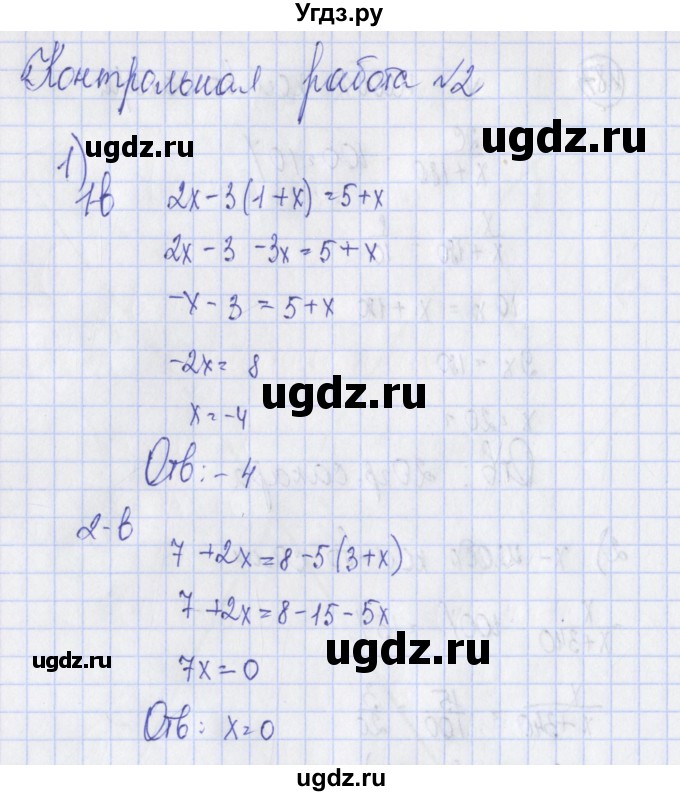 Угдз.ру
Контрольная работа №2
1)
ugdz.ru
1-в 2x-3(1+x)=5+x
2x-3-3x=5+x
-x-3=5+x
ugdz.ru
-2x= 8
ugdz.ru
x=-4
Отв: -4
2-в
7+2x=8-5(3+x)
ugdz.ru
7+2x=8-15-5x
ugdz.ru
ugdz.ru
7x=0
Отв: x=0
ugdz.ru
ugdz.ru